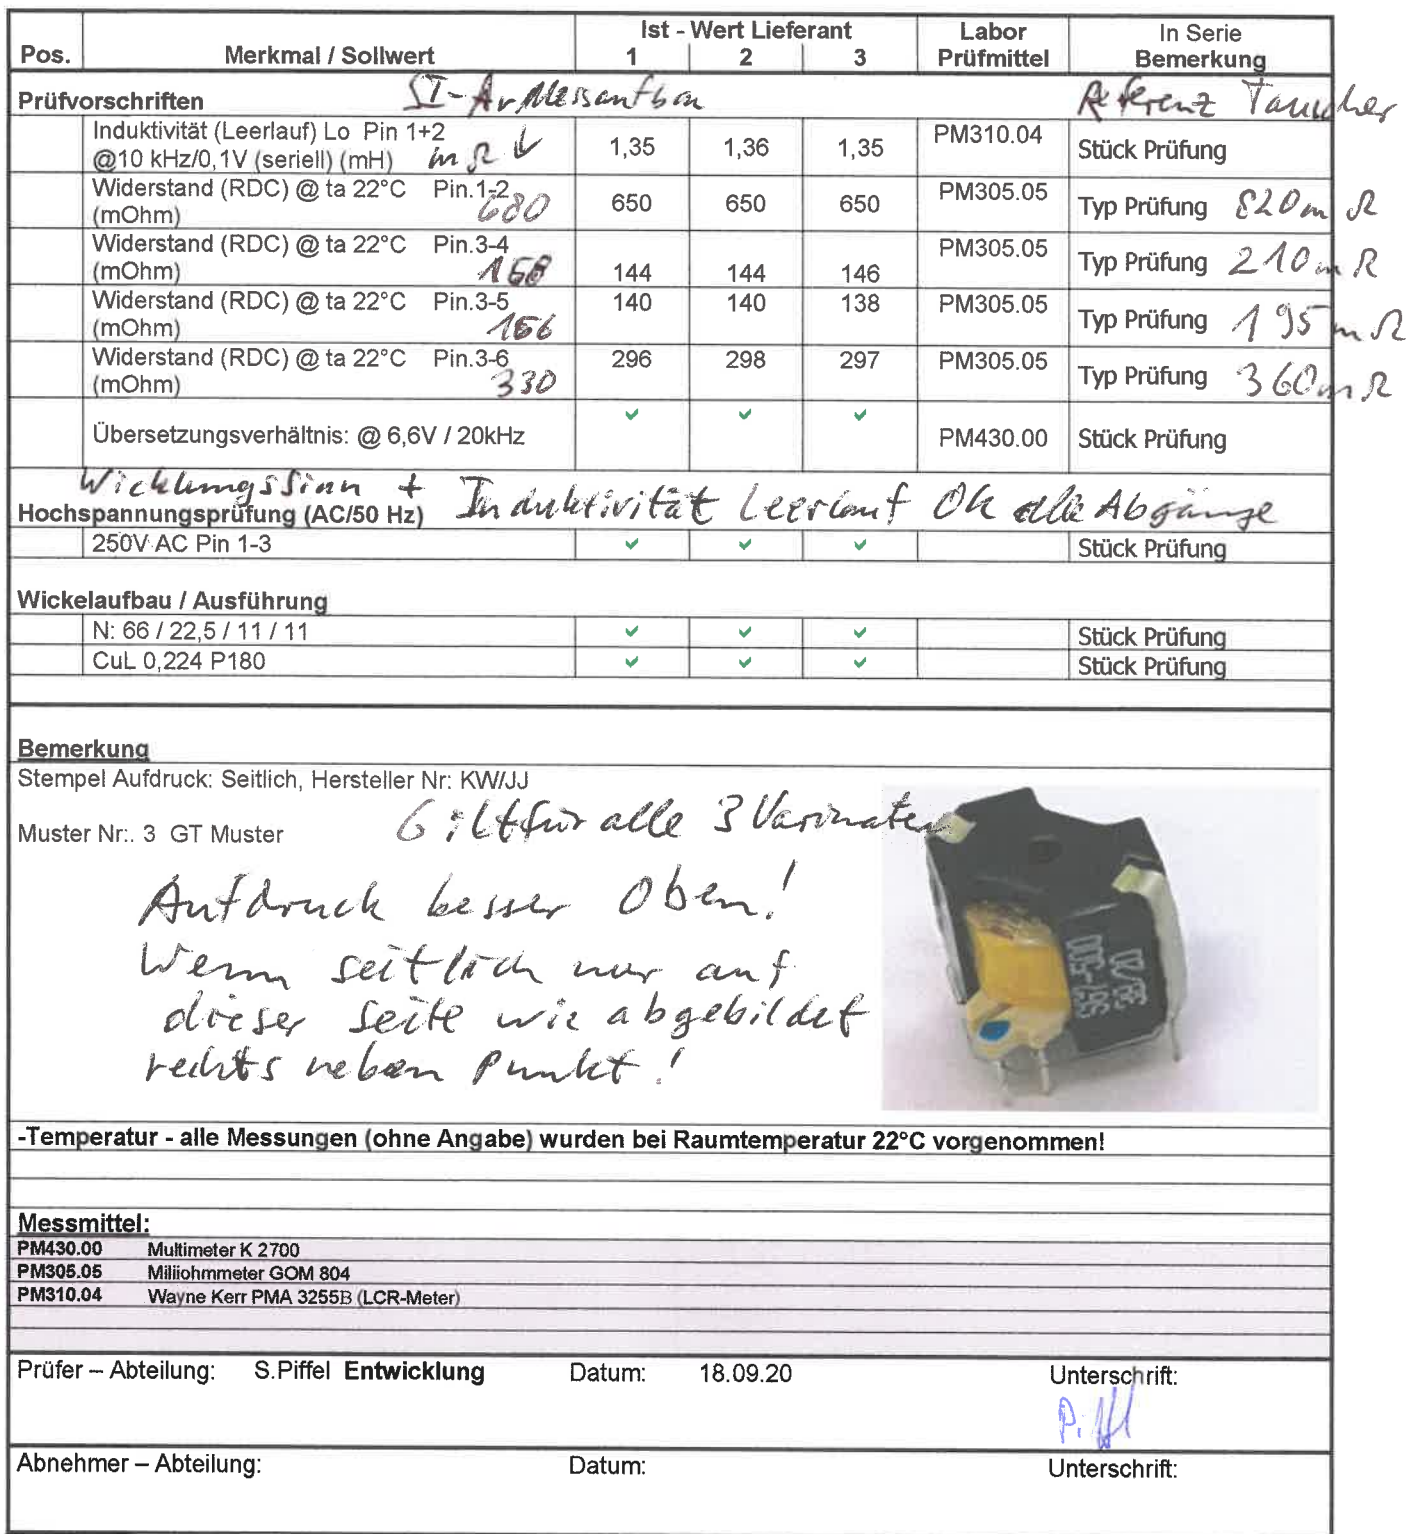 Ist - Wert Lieferant Labor In Serie
Pos. Merkmal / Sollwert 1 2 3 Prüfmittel Bemerkung
Prüfvorschriften Messaufbau Referenz Tauscher
Induktivität (Leerlauf) Lo Pin 1+2
@10 kHz/0,1V (seriell) (mH) mΩ ↓ 1,35 1,36 1,35 PM310.04 Stück Prüfung
Widerstand (RDC) @ ta 22°C Pin.1-2
(mOhm) 680 650 650 650 PM305.05 Typ Prüfung 820mΩ
Widerstand (RDC) @ ta 22°C Pin.3-4
(mOhm) 168 144 144 146 PM305.05 Typ Prüfung 210mΩ
Widerstand (RDC) @ ta 22°C Pin.3-5
(mOhm) 166 140 140 138 PM305.05 Typ Prüfung 195mΩ
Widerstand (RDC) @ ta 22°C Pin.3-6
(mOhm) 330 296 298 297 PM305.05 Typ Prüfung 360mΩ
Übersetzungsverhältnis: @ 6,6V / 20kHz ✓ ✓ ✓ PM430.00 Stück Prüfung
Wicklungssinn + Induktivität Leerlauf Ok alle Abgänge
Hochspannungsprüfung (AC/50 Hz)
250V AC Pin 1-3 ✓ ✓ ✓ Stück Prüfung
Wickelaufbau / Ausführung
N: 66 / 22,5 / 11 / 11 ✓ ✓ ✓ Stück Prüfung
CuL 0,224 P180 ✓ ✓ ✓ Stück Prüfung
Bemerkung
Stempel Aufdruck: Seitlich, Hersteller Nr: KW/JJ
Gilt für alle 3 Varinaten
Muster Nr:. 3 GT Muster
Aufdruck besser Oben!
Wenn seitlich nur auf
dieser Seite wie abgebildet
rechts neben Punkt!
-Temperatur - alle Messungen (ohne Angabe) wurden bei Raumtemperatur 22°C vorgenommen!
Messmittel:
PM430.00 Multimeter K 2700
PM305.05 Miliiohmmeter GOM 804
PM310.04 Wayne Kerr PMA 3255B (LCR-Meter)
Prüfer – Abteilung: S.Piffel Entwicklung Datum: 18.09.20 Unterschrift:
Abnehmer – Abteilung: Datum: Unterschrift: